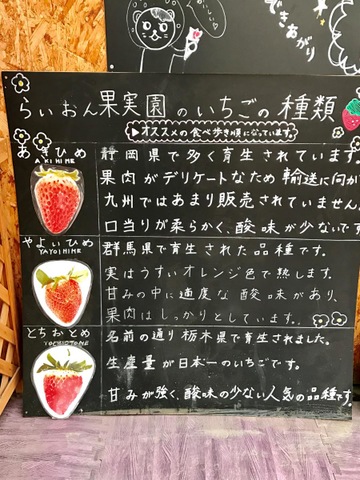 できあがり
らいおん果実園のいちごの種類
▶オススメの食べ歩き順になっています。
あきひめ
AKIHIME
静岡県で多く育生されています
果肉がデリケートなため輸送に向か
九州ではあまり販売されていません。
口当りが柔らかく、酸味が少ないです
やよいひめ
YAYOIHIME
群馬県で育生された品種です。
実はうすいオレンジ色で熟します。
甘みの中に適度な酸味があり、
果肉はしっかりとしています。
とちおとめ
名前の通り栃木県で育生されました。
生産量が日本一のいちごです。
甘みが強く、酸味の少ない人気の品種です